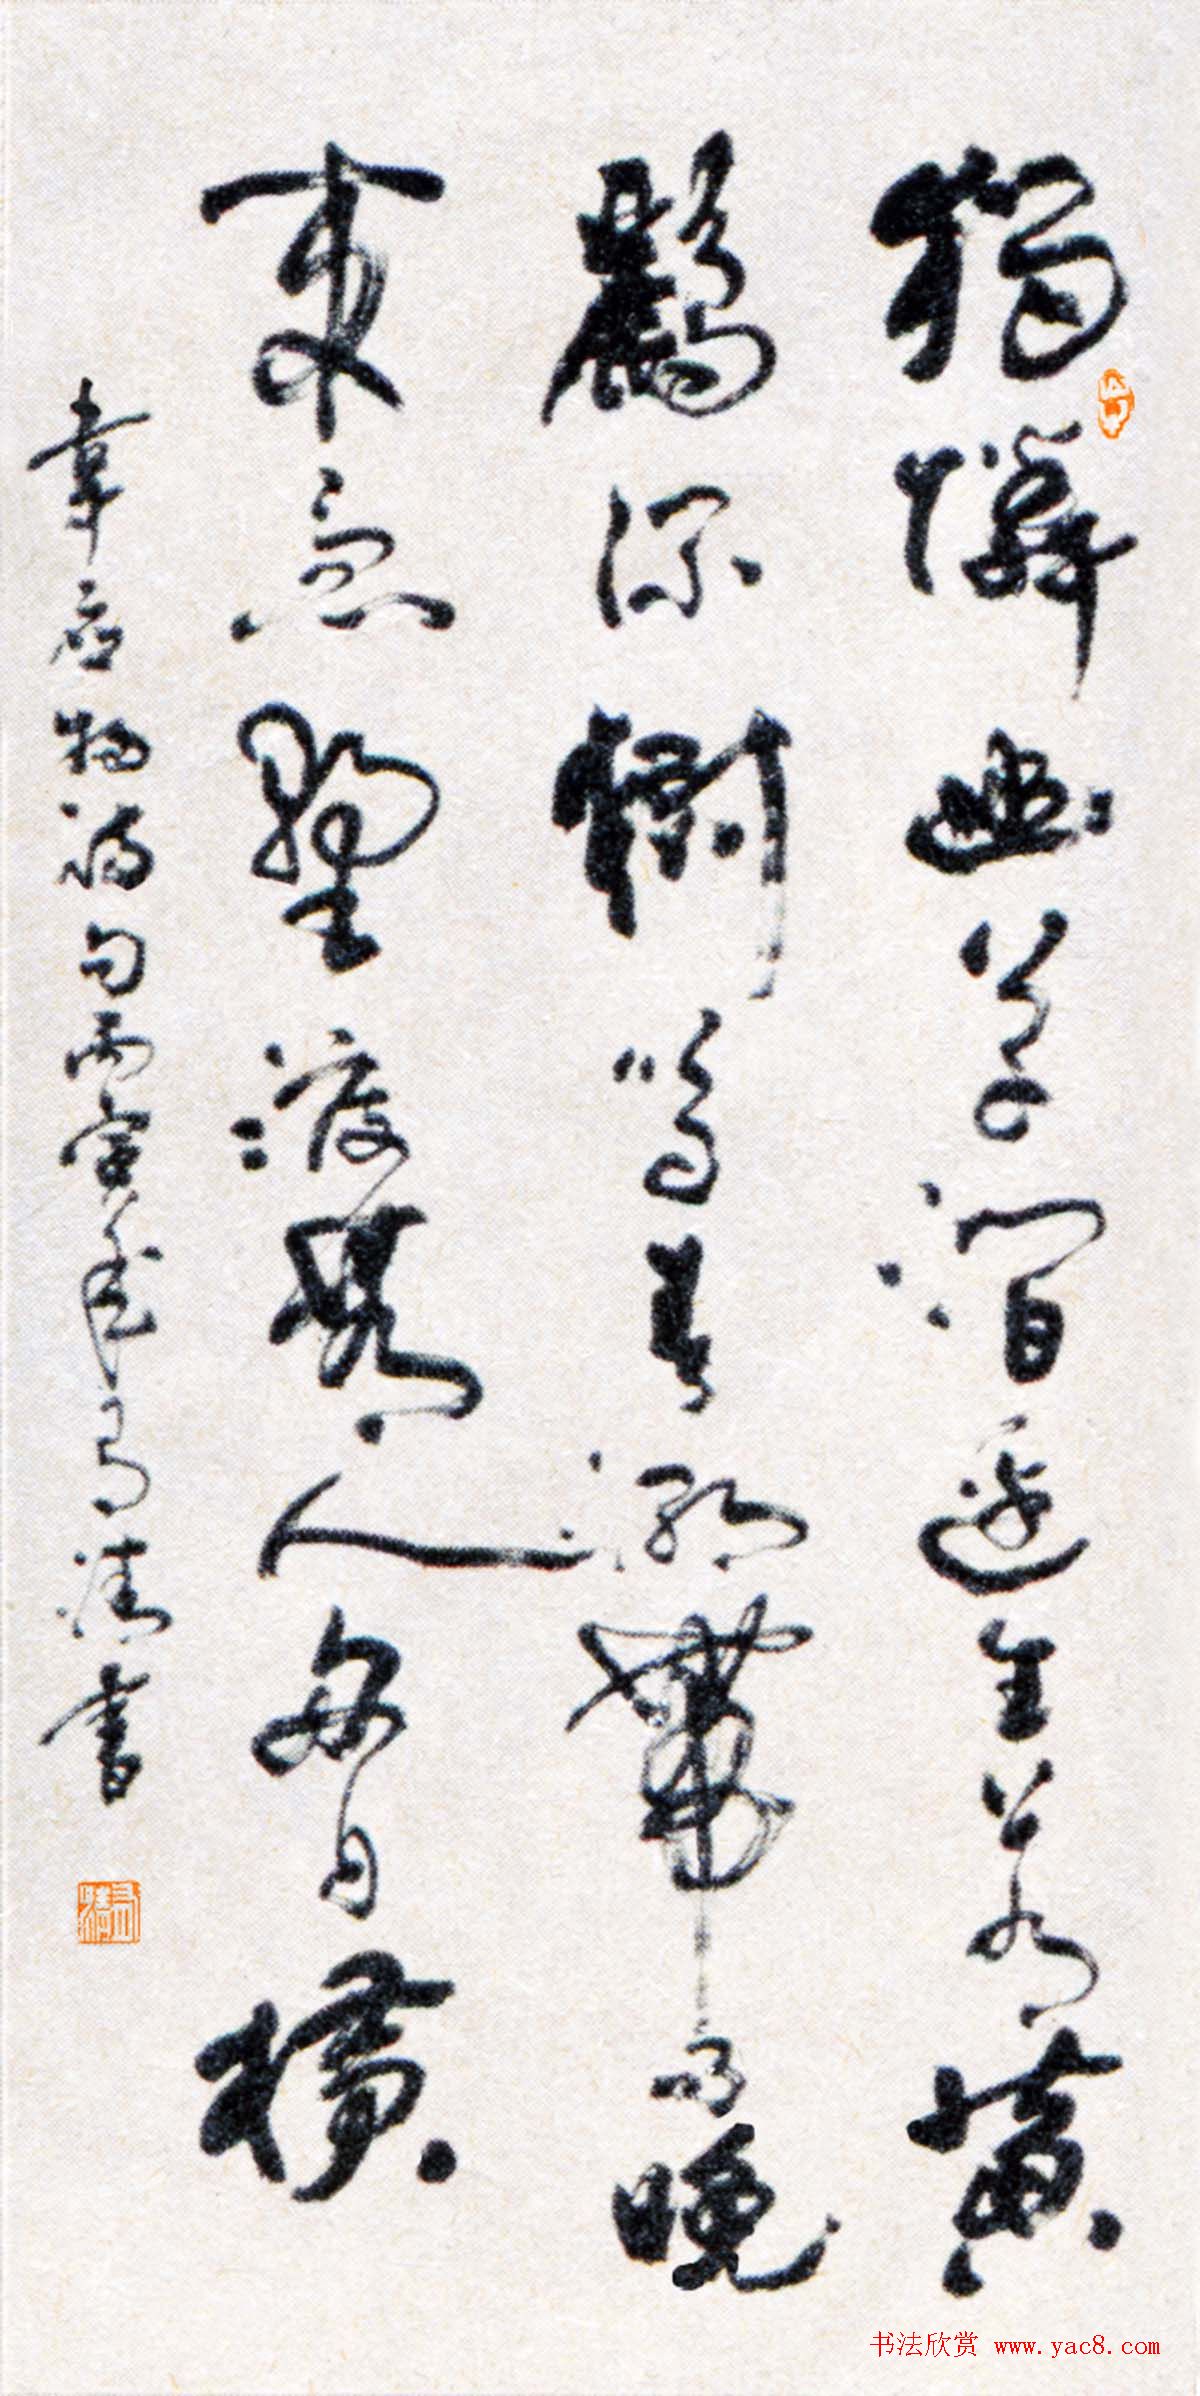 獨憐幽草澗邊生上有黃
鸝深樹鳴春潮帶雨晚
來急野渡無人舟自橫
韋應物詩句丙寅年清書
书法欣赏 www.yac8.com